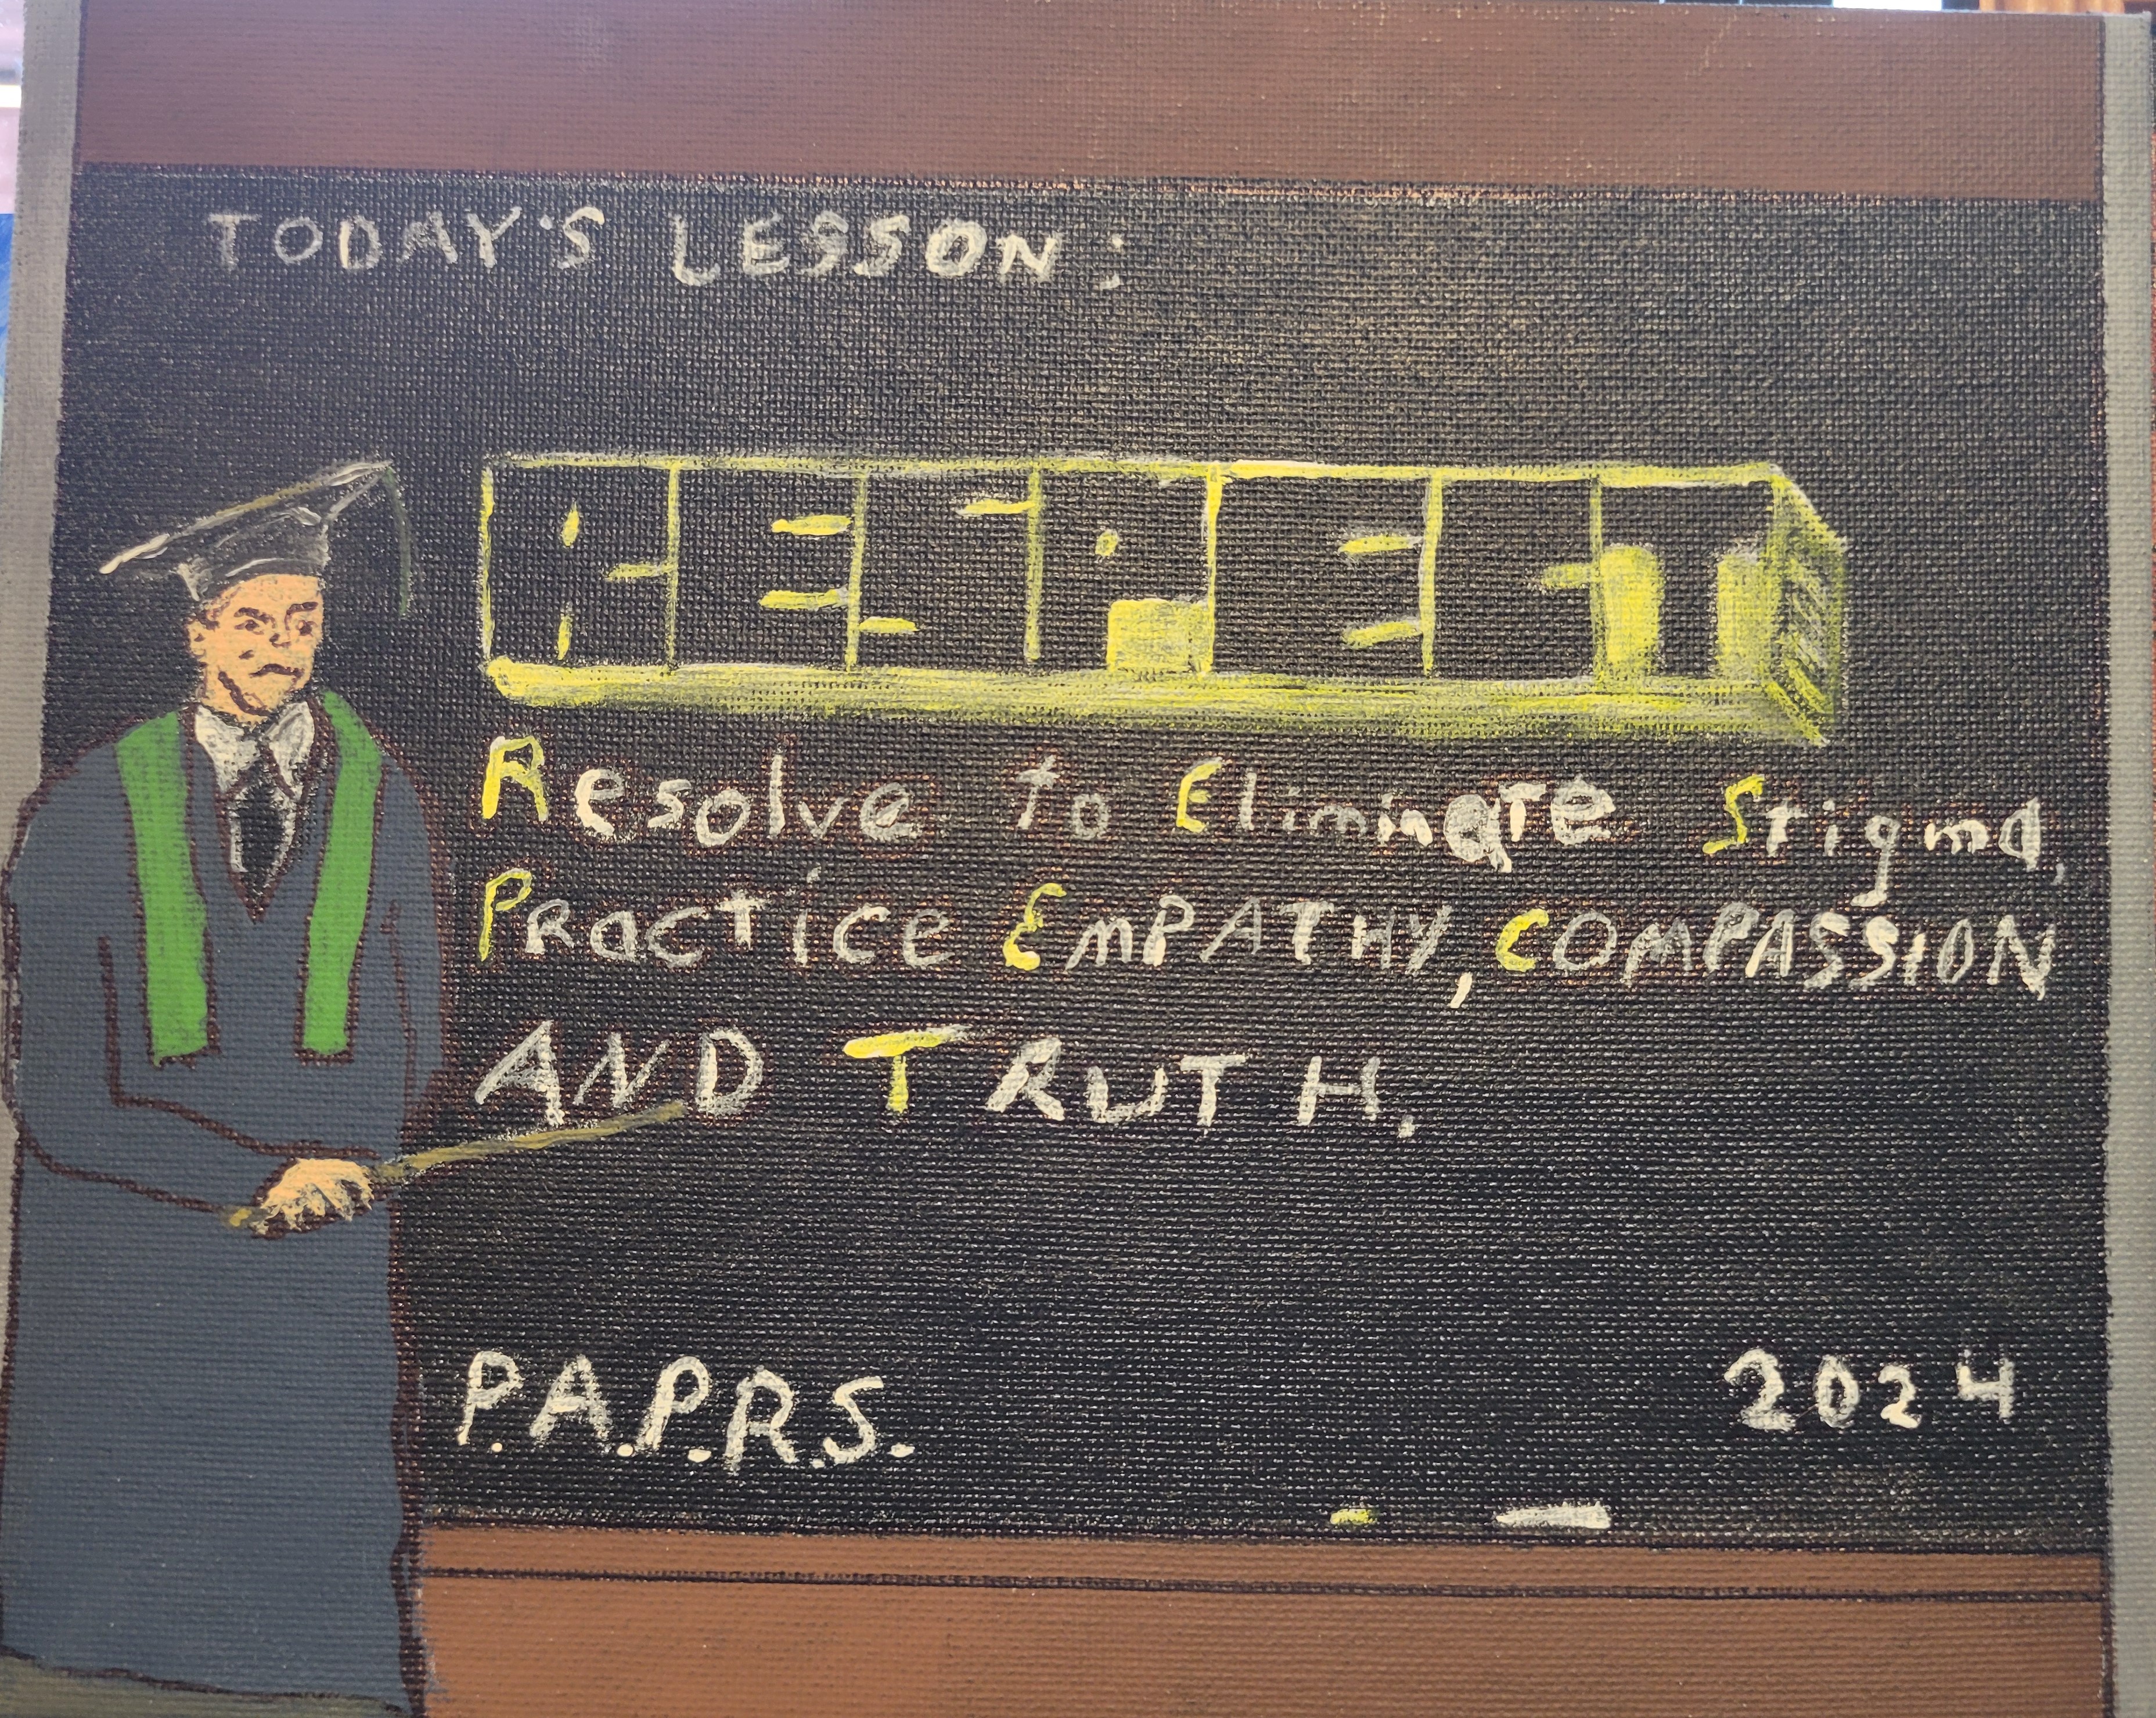 TODAY'S LESSON:
RESPECT
Resolve to Eliminate Stigma,
Practice EMPATHY, COMPASSION
AND TRUTH.
P.A.P.R.S. 2024